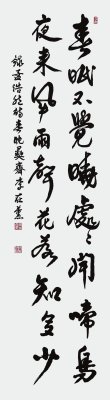 春眠不覺曉處處聞啼鳥
夜来風雨聲花落知多少
錄孟浩然詩春曉